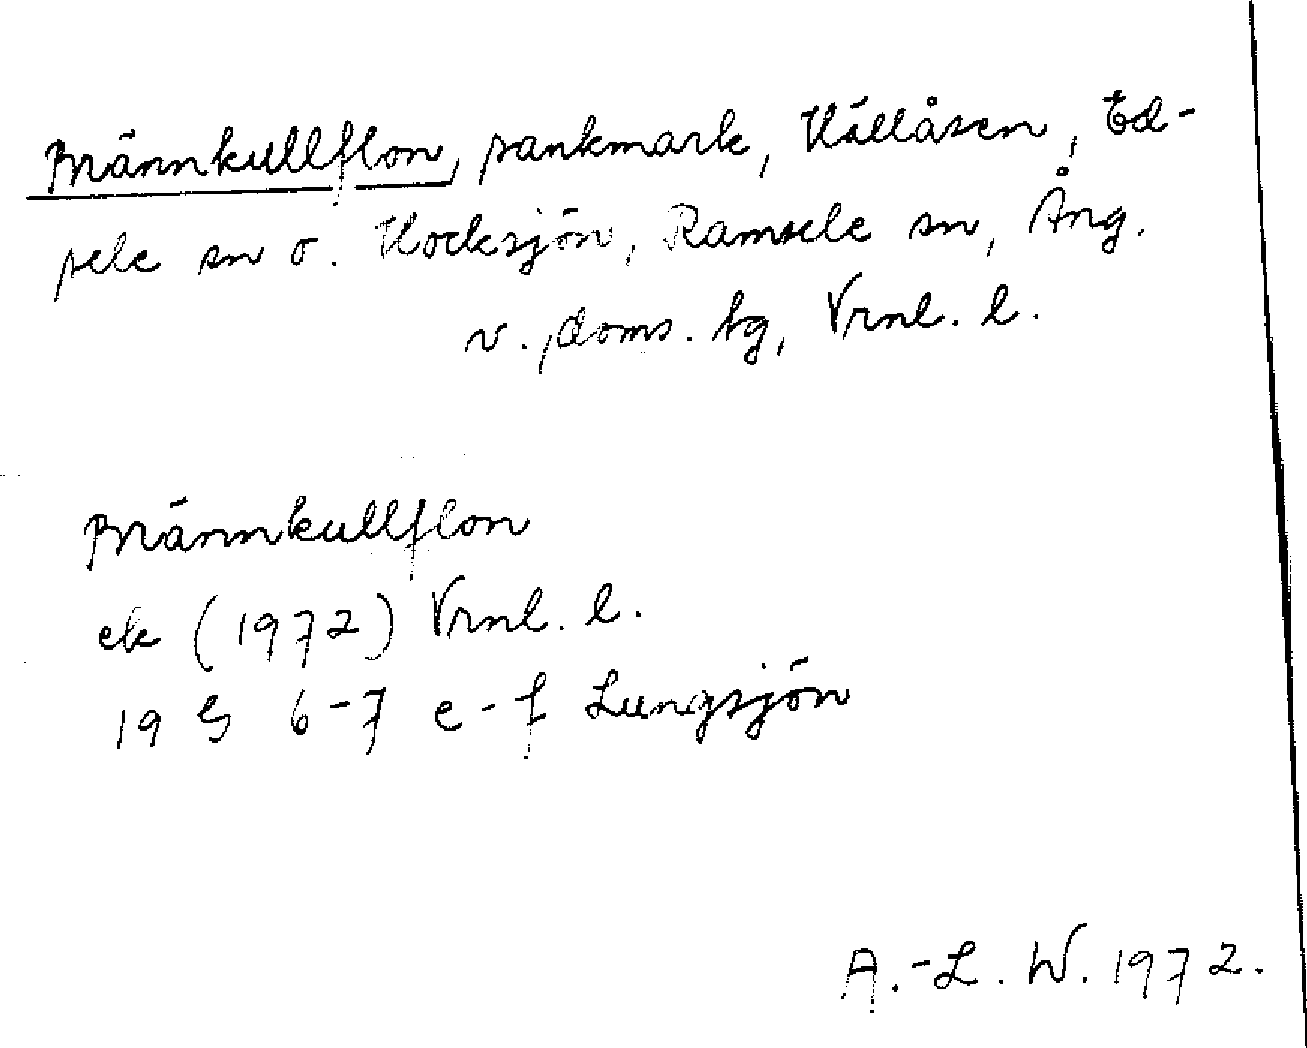 Brännkullflon, sankmark, Källåsen, Ed-
sele sn o. Kocksjön, Ramsele sn, Ång.
v. doms. tg, Vrnl. l.
Brännkullflon
ek (1972) Vrnl. l.
19 G 6-7 e-f Lungsjön
A.-L. W. 1972.